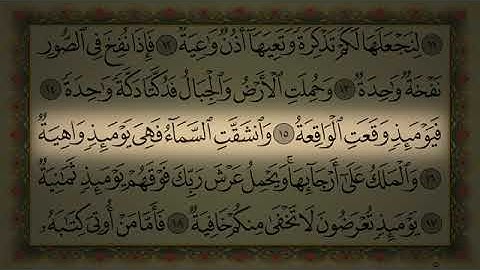 ١١ لِنَجْعَلَهَا لَكُمْ تَذْكِرَةً وَتَعِيَهَآ أُذُنٌ وَٰعِيَةٌ ١٢ فَإِذَا نُفِخَ فِى ٱلصُّورِ
نَفْخَةٌ وَٰحِدَةٌ ١٣ وَحُمِلَتِ ٱلْأَرْضُ وَٱلْجِبَالُ فَدُكَّتَا دَكَّةً وَٰحِدَةً ١٤
فَيَوْمَئِذٍ وَقَعَتِ ٱلْوَاقِعَةُ ١٥ وَٱنشَقَّتِ ٱلسَّمَآءُ فَهِىَ يَوْمَئِذٍ وَاهِيَةٌ
١٦ وَٱلْمَلَكُ عَلَىٰٓ أَرْجَآئِهَا ۚ وَيَحْمِلُ عَرْشَ رَبِّكَ فَوْقَهُمْ يَوْمَئِذٍ ثَمَٰنِيَةٌ
١٧ يَوْمَئِذٍ تُعْرَضُونَ لَا تَخْفَىٰ مِنكُمْ خَافِيَةٌ ١٨ فَأَمَّا مَنْ أُوتِىَ كِتَٰبَهُۥ